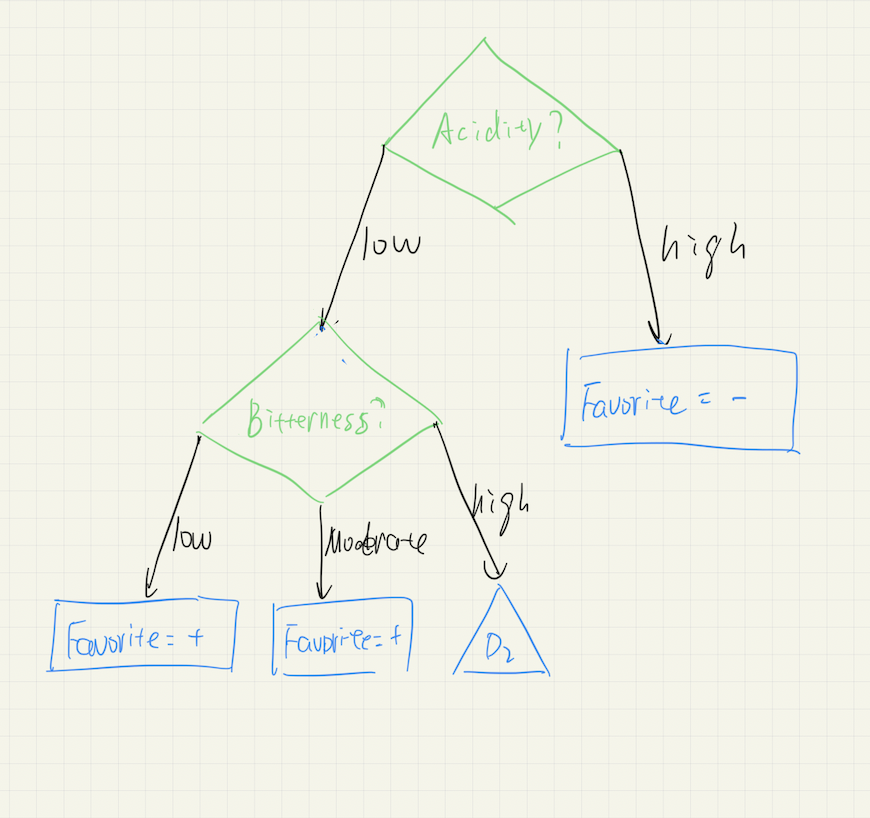 Acidity?
low
high
Favorite = -
Bitterness?
low
Moderate
high
Favorite = +
Favorite = +
D2